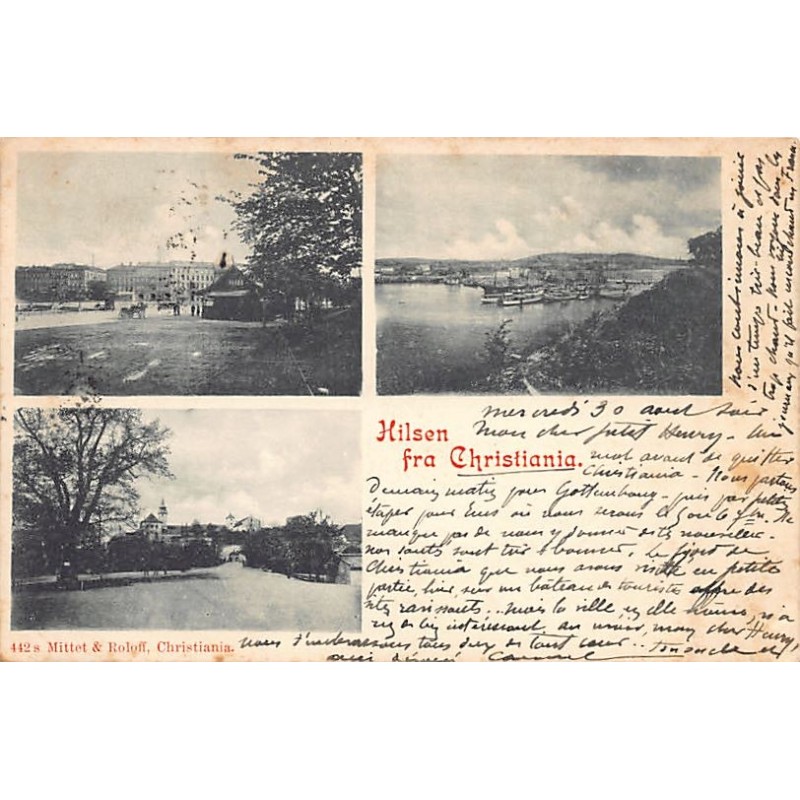 Hilsen
fra Christiania.
442 s Mittet & Roloff, Christiania.
mercredi 30 aout soir
Mon cher petit Henry - Un
mot avant de quitter
Christiania - Nous partons
Demain matin pour Gottembourg - puis par petites
étapes pour où nous serons le
manque pas de nous y donner de tes nouvelles -
nos santés sont très bonnes, le fjord de
Christiania que nous avons visité en petite
partie, hier, sur un bateau de touristes offre des
sites ravissants... mais la ville en elle même, n'a
rien de bien intéressant, au revoir, mon cher Henry,
nous t'embrassons tous deux de tout coeur..
nous continuons à jouir
d'un temps très beau et pas
trop chaud -